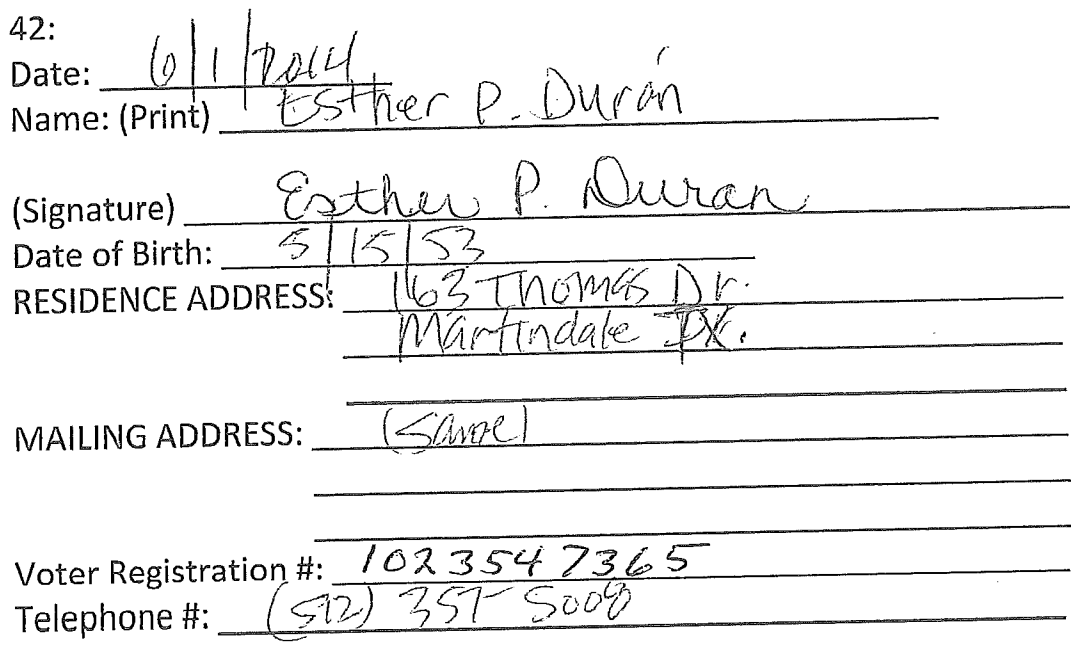 42:
Date: 6/1/2014
Name: (Print) Esther P. Durán
(Signature) Esther P. Duran
Date of Birth: 5/15/53
RESIDENCE ADDRESS: 163 Thomas Dr.
Martindale TX.
MAILING ADDRESS: (Same)
Voter Registration #: 1023547365
Telephone #: (512) 357-5008